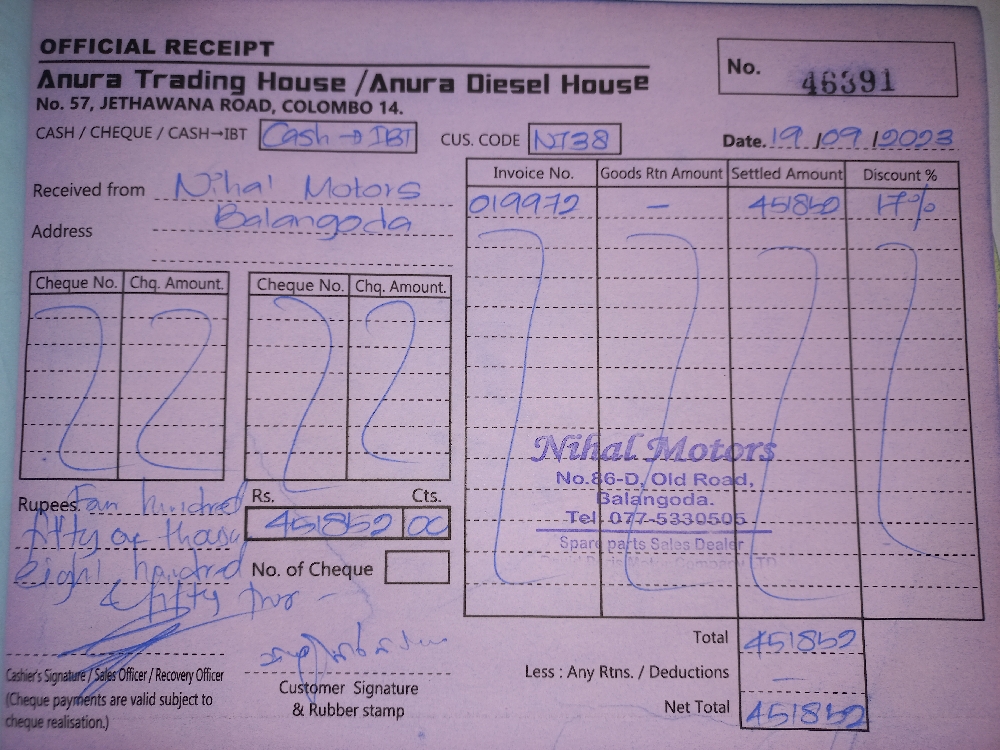 OFFICIAL RECEIPT
Anura Trading House /Anura Diesel House
No. 57, JETHAWANA ROAD, COLOMBO 14.
No. 46391
CASH / CHEQUE / CASH→IBT Cash → IBT
CUS. CODE NI38
Date. 19 /09 /2023
Received from Nihal Motors
Address Balangoda
Invoice No. Goods Rtn Amount Settled Amount Discount %
019972 — 451852 17%
Cheque No. Chq. Amount. Cheque No. Chq. Amount.
Nihal Motors
No.86-D, Old Road,
Balangoda.
Tel. 077-5330505
Spare parts Sales Dealer
Rupees. hundred
fifty thousa
Eight hundred
& fifty two -
Rs. Cts.
451852 00
No. of Cheque
Total 451852
Less : Any Rtns. / Deductions —
Net Total 451852
Cashier's Signature / Sales Officer / Recovery Officer
(Cheque payments are valid subject to
cheque realisation.)
Customer Signature
& Rubber stamp